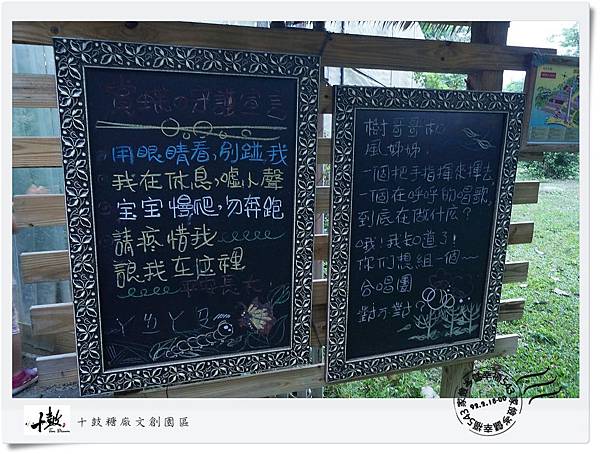 寶貝の求護宣言
用眼睛看,別碰我
我在休息,噓小聲
宝宝慢爬,勿奔跑
請疼惜我
讓我在這裡
平安長大
ㄚㄉㄚㄡ
樹哥哥和
風姊姊,
一個把手指揮來揮去
一個在呼呼的唱歌
到底在做什麼?
哦!我知道了!
你們想組一個~
合唱團
對不對?
十鼓
十鼓糖廠文創園區